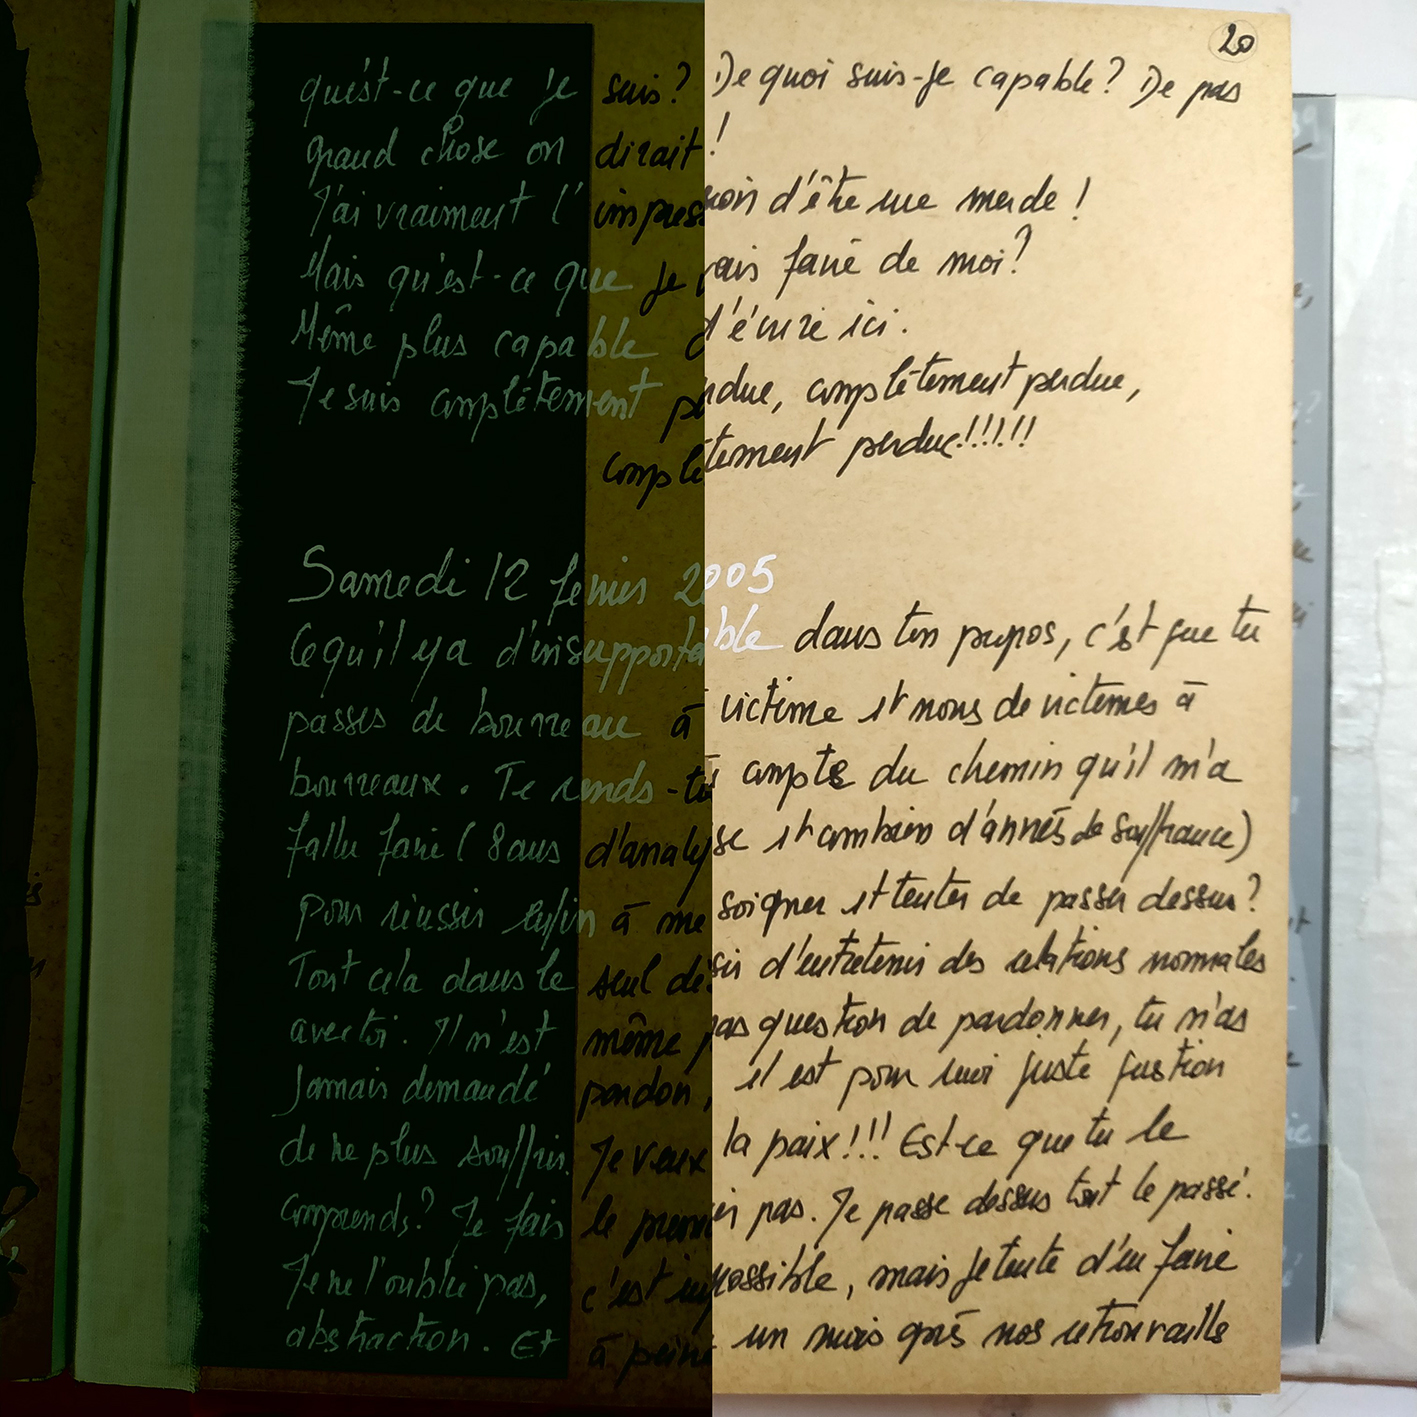 20
qu'est-ce que je suis? De quoi suis-je capable? De pas
grand chose on dirait!
J'ai vraiment l'impression d'être une merde!
Mais qu'est-ce que je vais faire de moi?
Même plus capable d'écrire ici.
Je suis complètement perdue, complètement perdue,
complètement perdue!!!!!!
Samedi 12 février 2005
Ce qu'il y a d'insupportable dans ton propos, c'est que tu
passes de bourreau à victime et nous de victimes à
bourreaux. Te rends-tu compte du chemin qu'il m'a
fallu faire (8 ans d'analyse et combien d'années de souffrance)
pour réussir enfin à me soigner et tenter de passer dessus?
Tout cela dans le seul désir d'entretenir des relations normales
avec toi. Il n'est même pas question de pardonner, tu n'as
jamais demandé pardon, il est pour moi juste question
de ne plus souffrir. Je veux la paix!!! Est-ce que tu le
comprends? Je fais le premier pas. Je passe dessus tout le passé.
Je ne l'oublie pas, c'est impossible, mais je tente d'en faire
abstraction. Et à peine un mois après nos retrouvailles